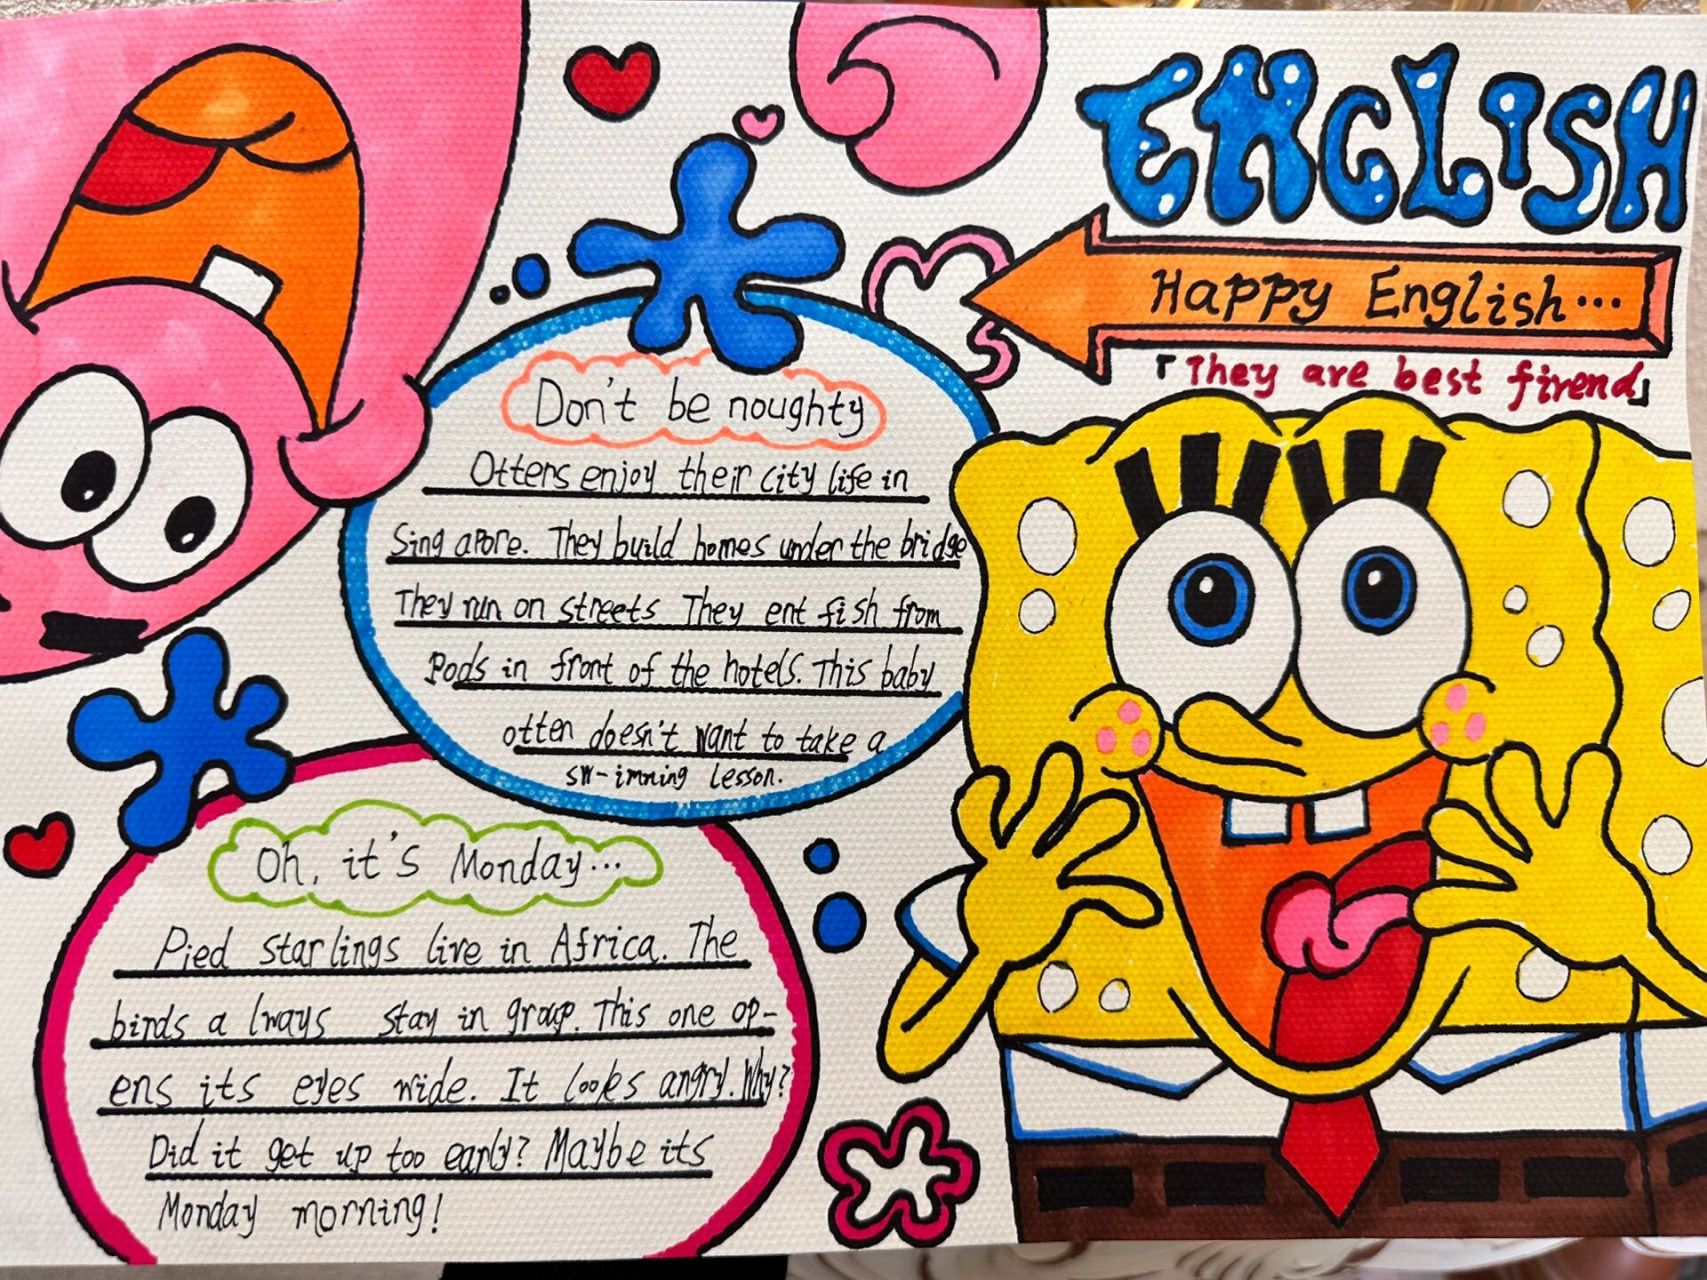 ENGLISH
Happy English...
「They are best firend」
Don't be noughty
Otters enjoy their city life in
Singapore. They build homes under the bridge
They run on streets They ent fish from
Pods in front of the hotels. This baby
otten doesn't want to take a
sw-imning lesson.
Oh, it's Monday...
Pied starlings live in Africa. The
birds always stay in group. This one op-
ens its eyes wide. It looks angry. Why?
Did it get up too early? Maybe its
Monday morning!